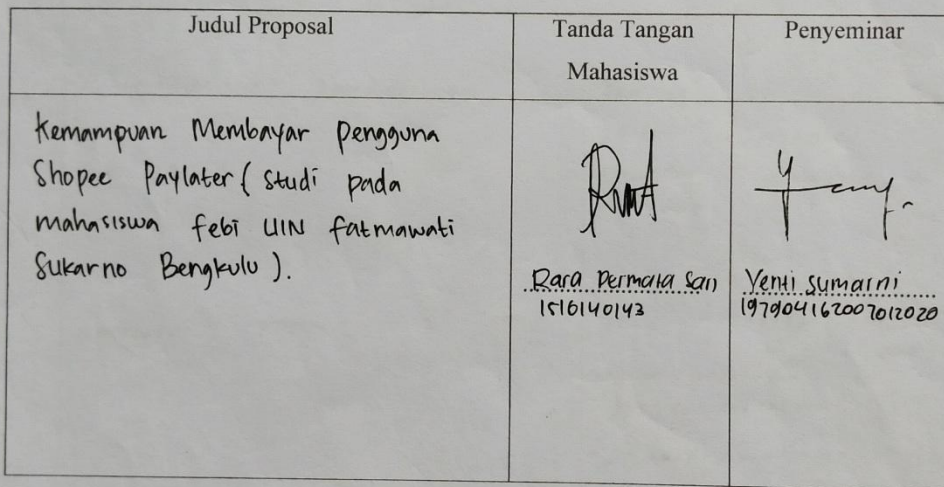 Judul Proposal
Tanda Tangan
Mahasiswa
Penyeminar
Kemampuan Membayar Pengguna
Shopee Paylater ( studi pada
mahasiswa febi UIN fatmawati
Sukarno Bengkulu ).
Rara Permata Sari
1516140143
Yenti Sumarni
197904162007012020